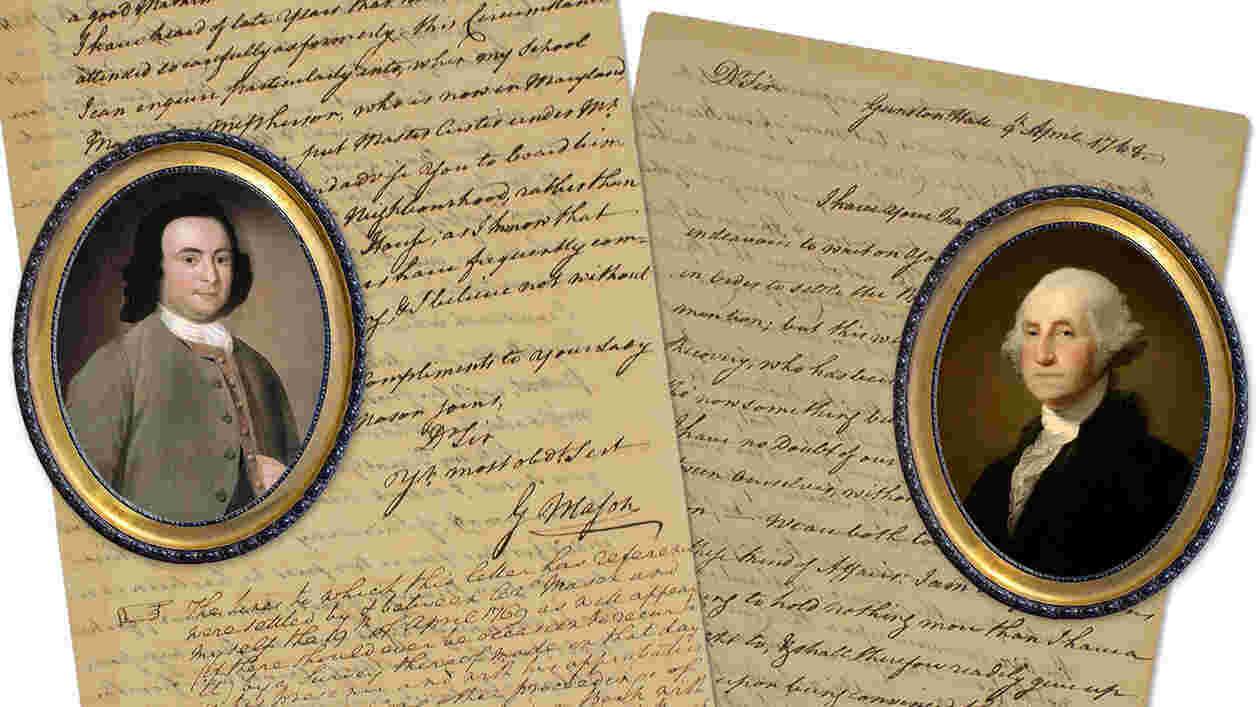 a good
I have heard of late Years that
attended so carefully as formerly. this Circumstance
I can enquire particularly into, when my School
McPherson, who is now in Maryland
put Master Custis under Mr.
advise You to board him
Neighbourhood, rather than
House; as I know that
have frequently com-
& I believe not without
Compliments to Your Lady
Mason Joins,
Dr Sir
Yr. most obdt. Sert
G Mason
The lines to which this letter has referen
were settled by & between Colo Mason and
myself the 19 of April 1769 as will appear
if there should ever be occasion to recur
by a Survey thereof made on that day
presence and with his approbation
proceedings of
Dr Sir
Gunston Hall 9th April 1768.
I have Your
endeavour to wait on You
in order to settle the
mention; but this
Recovery, who has been
is now something be
I have no Doubt of our
ween Ourselves, witho
on, — We can both
kind of Affair: I am
ng to hold nothing more than I have a
to, & shall therefore readily give up
upon being convinced